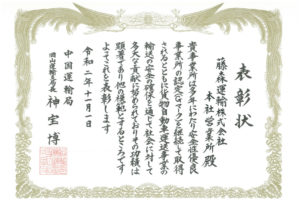 表彰状
藤森運輸株式会社
本社営業所 殿
貴事業所は多年にわたり安全性優良
事業所の認定(Gマーク)を継続して取得
されるとともに貨物自動車運送事業の
輸送の安全の確保を通じて社会に対して
多大な貢献に努められておりその功績は
顕著であり他の模範とするところです
よってこれを表彰します
令和二年十一月一日
中国運輸局
岡山運輸支局長 神宝 博